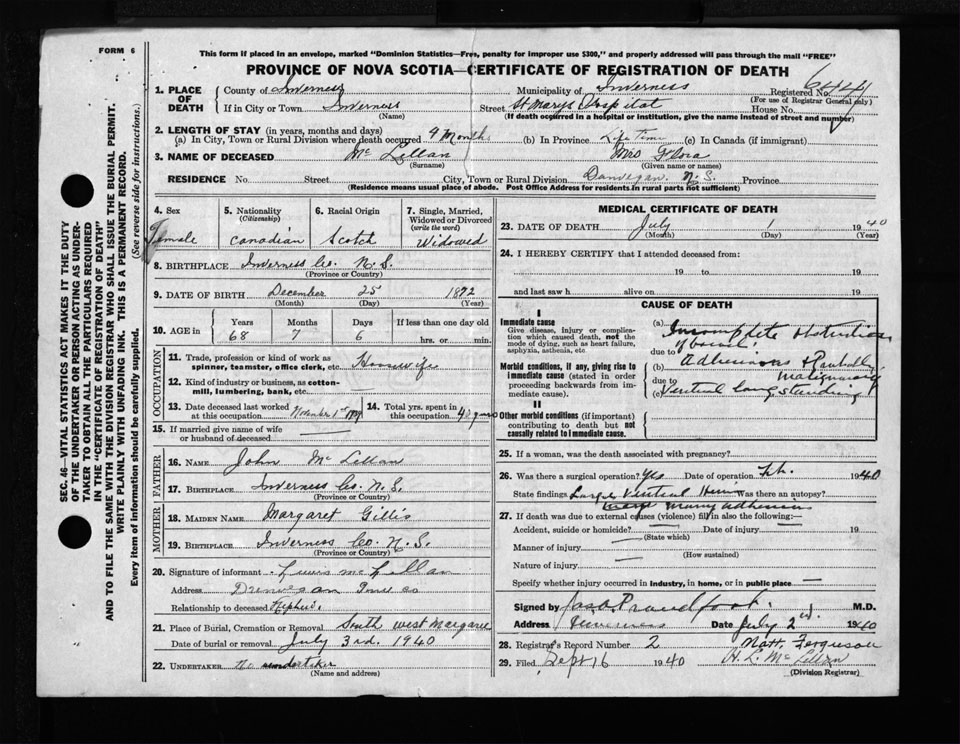 FORM 6
This form if placed in an envelope, marked "Dominion Statistics—Free, penalty for improper use $300," and properly addressed will pass through the mail "FREE"
PROVINCE OF NOVA SCOTIA—CERTIFICATE OF REGISTRATION OF DEATH
1. PLACE OF DEATH
County of Inverness Municipality of Inverness Registered No.
(For use of Registrar General only)
If in City or Town Inverness Street St Marys Hospital House No.
(Name) (If death occurred in a hospital or institution, give the name instead of street and number)
2. LENGTH OF STAY (in years, months and days)
(a) In City, Town or Rural Division where death occurred 9 Months (b) In Province Life Time (c) In Canada (if immigrant)
3. NAME OF DECEASED Mc Lellan Mrs Flora
(Surname) (Given name or names)
RESIDENCE No. Street City, Town or Rural Division Dunvegan N.S. Province
(Residence means usual place of abode. Post Office Address for residents in rural parts not sufficient)
4. Sex Female
5. Nationality (Citizenship) Canadian
6. Racial Origin Scotch
7. Single, Married, Widowed or Divorced (write the word) Widowed
8. BIRTHPLACE Inverness Co. N.S.
(Province or Country)
9. DATE OF BIRTH December 25 1872
(Month) (Day) (Year)
10. AGE in Years Months Days If less than one day old
68 7 6 hrs. or min.
OCCUPATION
11. Trade, profession or kind of work as spinner, teamster, office clerk, etc. Housewife
12. Kind of industry or business, as cotton-mill, lumbering, bank, etc.
13. Date deceased last worked at this occupation November 1st 1939
14. Total yrs. spent in this occupation 40 years
15. If married give name of wife or husband of deceased
FATHER
16. NAME John Mc Lellan
17. BIRTHPLACE Inverness Co. N.S.
(Province or Country)
MOTHER
18. MAIDEN NAME Margaret Gillis
19. BIRTHPLACE Inverness Co. N.S.
(Province or Country)
20. Signature of informant McLellan
Address Dunvegan
Relationship to deceased Nephew.
21. Place of Burial, Cremation or Removal South West Margaree
Date of burial or removal July 3rd. 1940
22. UNDERTAKER No undertaker
(Name and address)
MEDICAL CERTIFICATE OF DEATH
23. DATE OF DEATH July 1 1940
(Month) (Day) (Year)
24. I HEREBY CERTIFY that I attended deceased from:
19 to 19
and last saw h alive on 19
CAUSE OF DEATH
I
Immediate cause
Give disease, injury or complication which caused death, not the mode of dying, such as heart failure, asphyxia, asthenia, etc.
(a) Incomplete obstruction of bowel
due to
Morbid conditions, if any, giving rise to immediate cause (stated in order proceeding backwards from immediate cause).
(b) Adhesions & Probably malignancy
due to
(c) Ventral long standing
II
Other morbid conditions (if important) contributing to death but not causally related to immediate cause.
25. If a woman, was the death associated with pregnancy?
26. Was there a surgical operation? Yes Date of operation Feb. 1940
State findings Large Ventral Hernia Was there an autopsy?
many adhesions
27. If death was due to external causes (violence) fill in also the following:—
Accident, suicide or homicide? Date of injury 19
(State which)
Manner of injury
(How sustained)
Nature of injury
Specify whether injury occurred in industry, in home, or in public place —
Signed by Jas. Proudfoot. M.D.
Address Inverness Date July 2nd. 1940
28. Registrar's Record Number 2 Matt. Ferguson
29. Filed Sept 16 1940 Mc Lellan
(Division Registrar)
SEC. 46—VITAL STATISTICS ACT MAKES IT THE DUTY
OF THE UNDERTAKER OR PERSON ACTING AS UNDER-
TAKER TO OBTAIN ALL THE PARTICULARS REQUIRED
IN THE "CERTIFICATE OF REGISTRATION OF DEATH"
AND TO FILE THE SAME WITH THE DIVISION REGISTRAR WHO SHALL ISSUE THE BURIAL PERMIT.
WRITE PLAINLY WITH UNFADING INK. THIS IS A PERMANENT RECORD.
Every item of information should be carefully supplied. (See reverse side for instructions.)